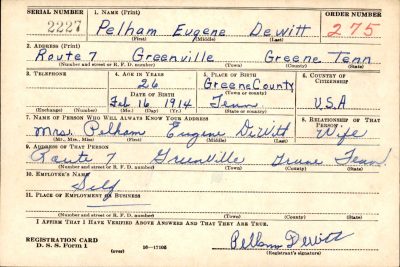 SERIAL NUMBER 1. NAME (Print) ORDER NUMBER
2227 Pelham Eugene Dewitt 275
(First) (Middle) (Last)
2. ADDRESS (Print)
Route 7 Greenville Greene Tenn
(Number and street or R. F. D. number) (Town) (County) (State)
3. TELEPHONE 4. AGE IN YEARS 5. PLACE OF BIRTH 6. COUNTRY OF CITIZENSHIP
26 Greene County
DATE OF BIRTH (Town or county)
Feb 16, 1914 Tenn U.S.A
(Exchange) (Number) (Mo.) (Day) (Yr.) (State or country)
7. NAME OF PERSON WHO WILL ALWAYS KNOW YOUR ADDRESS 8. RELATIONSHIP OF THAT PERSON
Mrs. Pelham Eugene DeWitt Wife
(Mr., Mrs., Miss) (First) (Middle) (Last)
9. ADDRESS OF THAT PERSON
Route 7 Greenville Greene Tenn
(Number and street or R. F. D. number) (Town) (County) (State)
10. EMPLOYER'S NAME
Self
11. PLACE OF EMPLOYMENT OR BUSINESS
(Number and street or R. F. D. number) (Town) (County) (State)
I AFFIRM THAT I HAVE VERIFIED ABOVE ANSWERS AND THAT THEY ARE TRUE.
REGISTRATION CARD
D. S. S. Form 1 (over) 16—17105 Pelham Dewitt
(Registrant's signature)